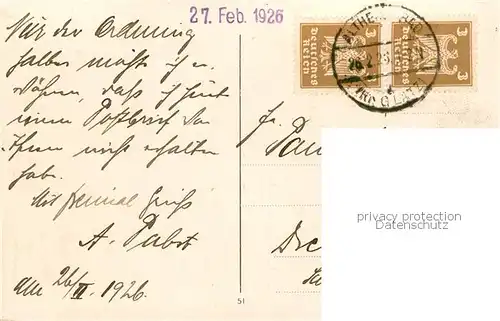 27. Feb. 1926
Nur der Ordnung
halber möchte ich er-
wähnen, daß ich heut
einen Postbrief von
Ihnen nicht erhalten
habe.
Mit Gruß
A. Pabst
am 26/II. 1926.
Fr.
Pau
Dre
3 Deutsches Reich 3
3 Deutsches Reich 3
51
privacy protection
Datenschutz